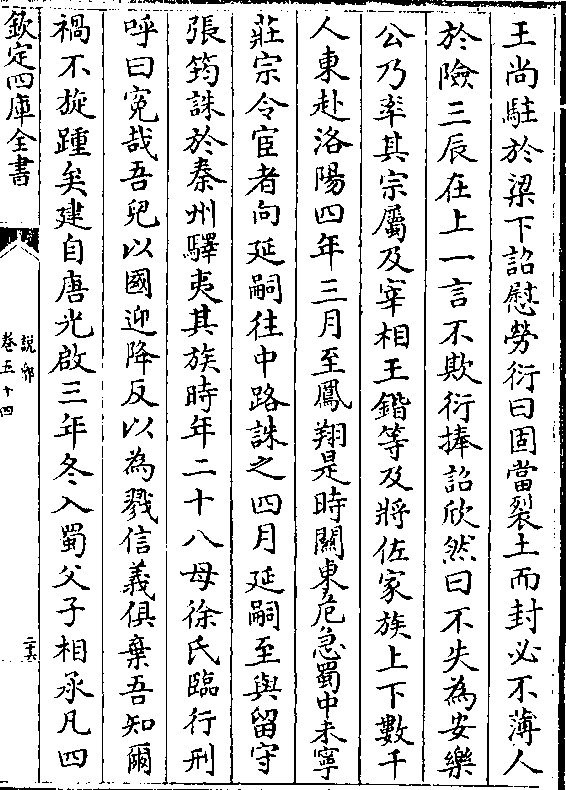 王尚駐於梁下詔慰勞衍曰固當裂土而封必不薄人
於險三辰在上一言不欺衍捧詔欣然曰不失為安樂
公乃率其宗屬及宰相王鍇等及將佐家族上下數千
人東赴洛陽四年三月至鳳翔是時關東危急蜀中未寧
莊宗令宦者向延嗣往中路誅之四月延嗣至與留守
張筠誅於秦州驛夷其族時年二十八母徐氏臨行刑
呼曰寃哉吾兒以國迎降反以為戮信義俱棄吾知爾
禍不旋踵矣建自唐光啟三年冬入蜀父子相承凡四
欽定四庫全書
說郛
卷五十四
二十六